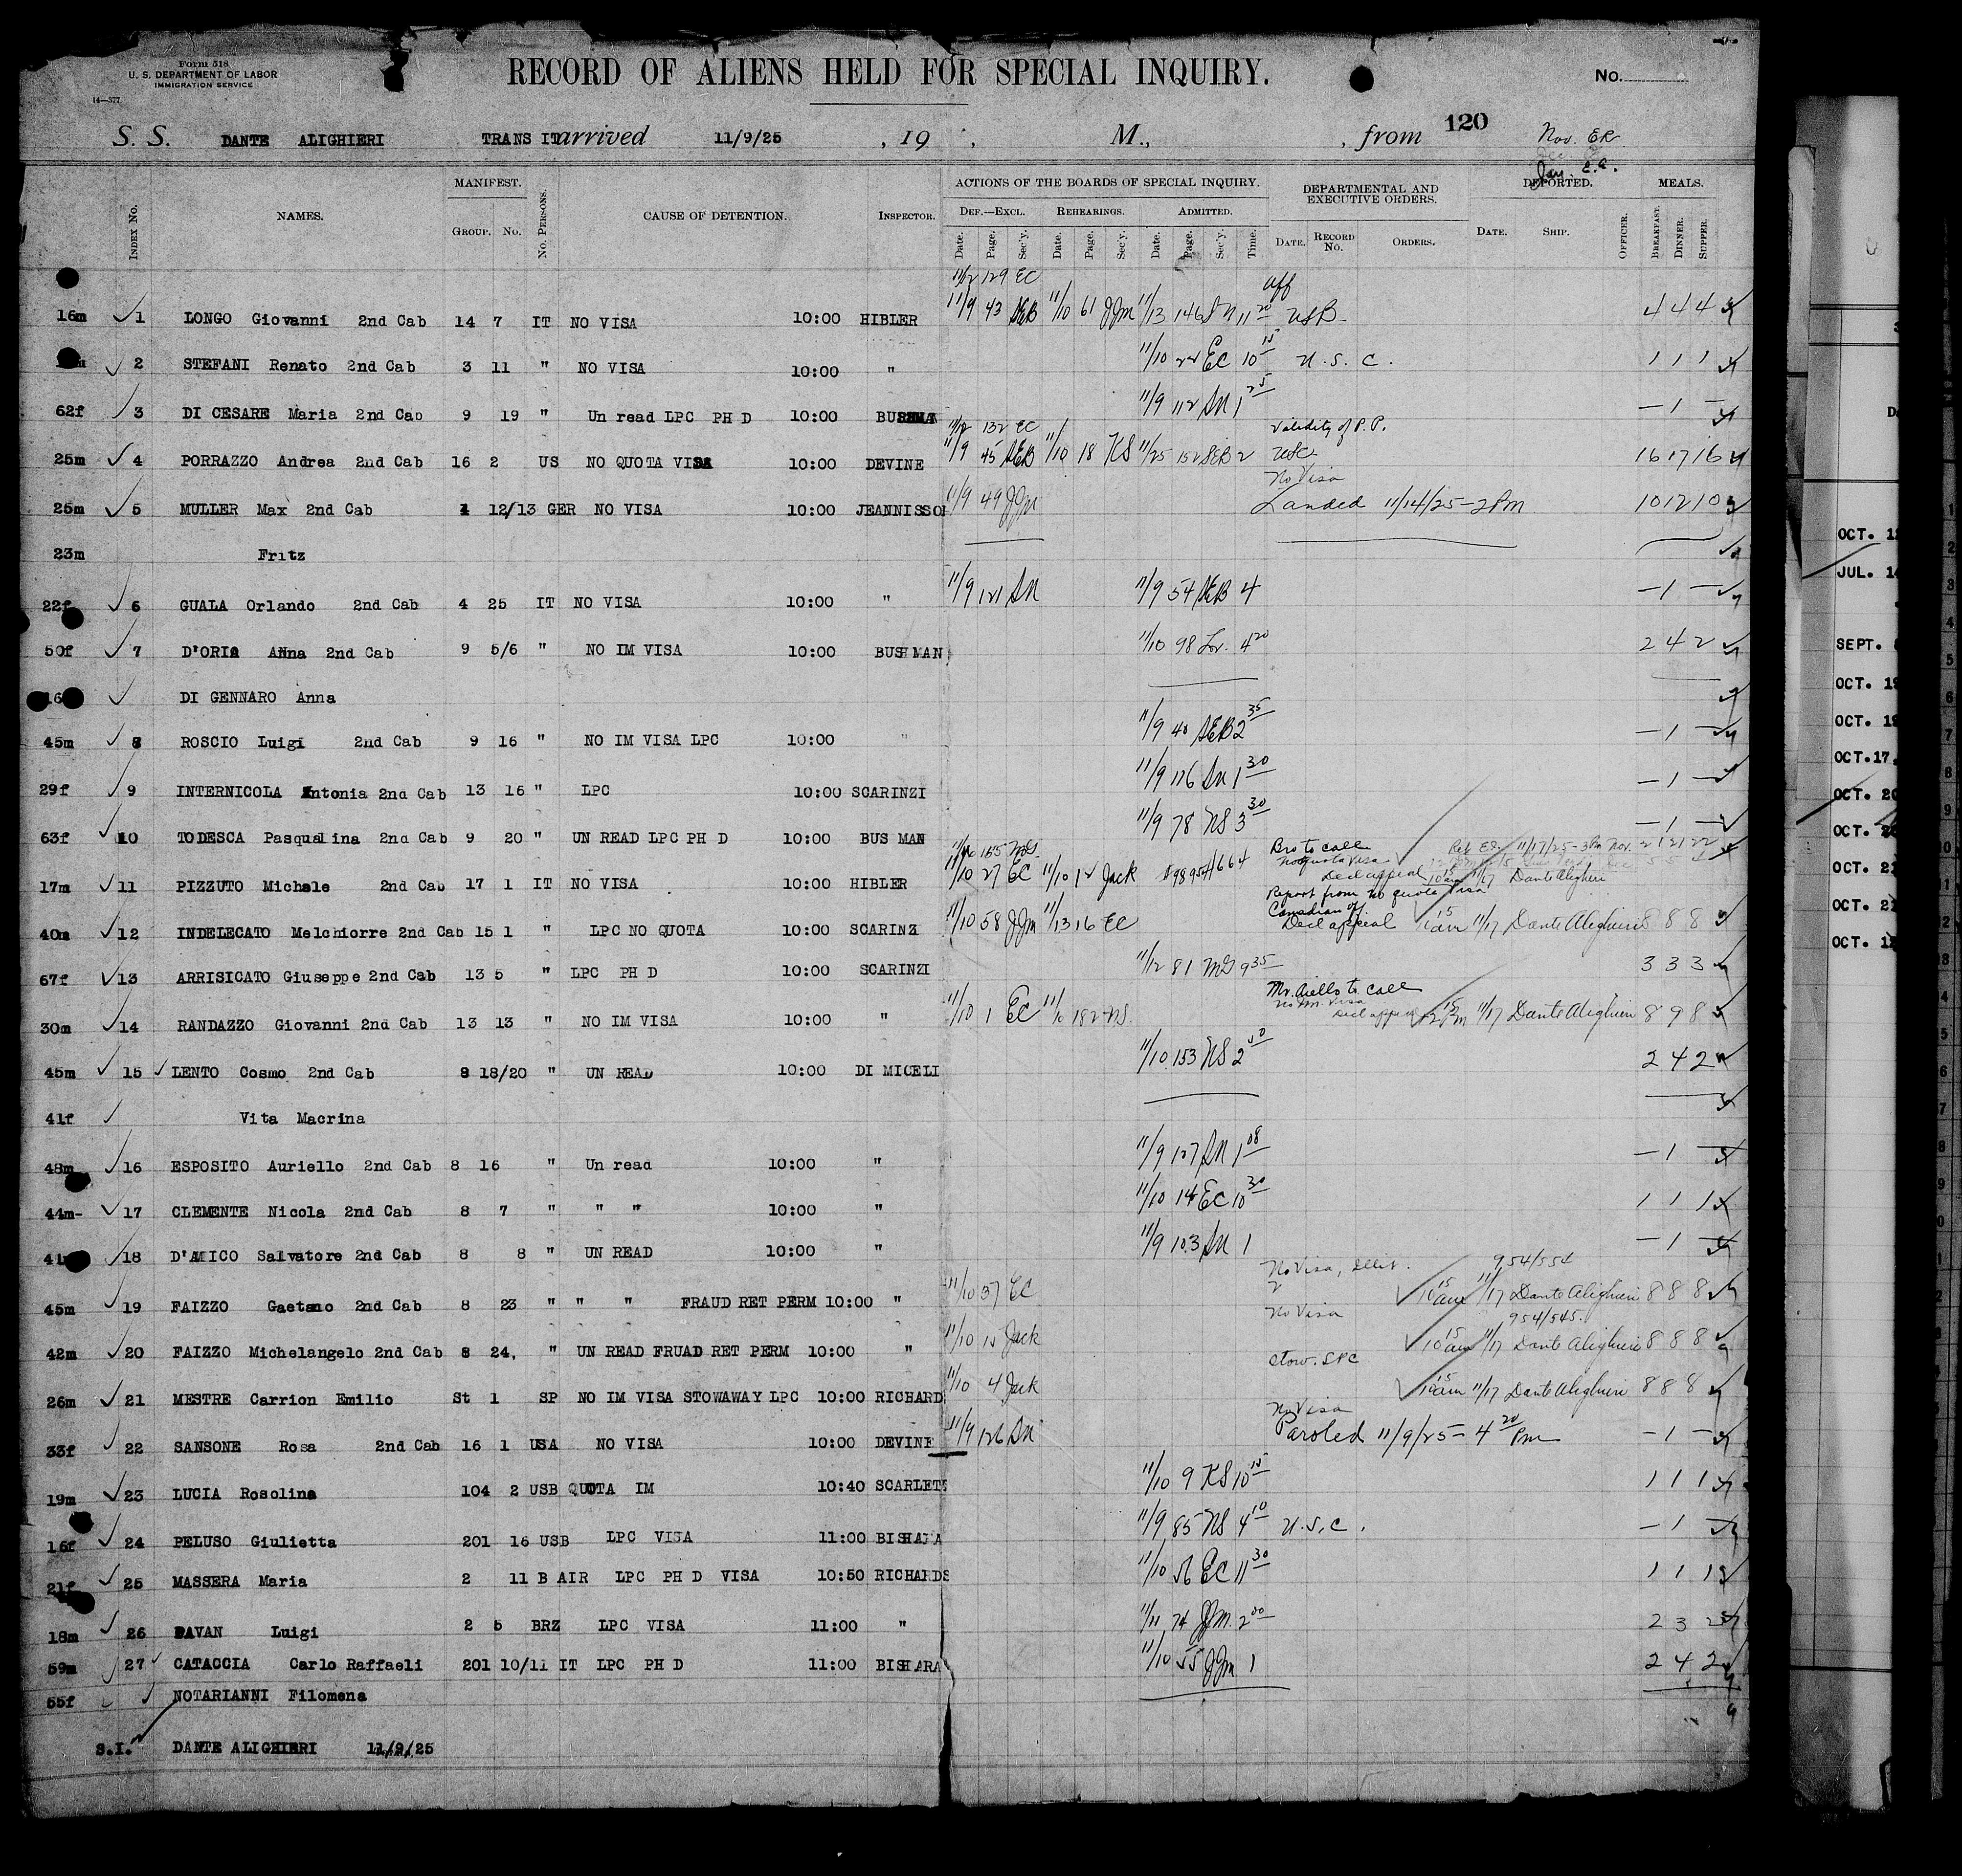 Form 518
U. S. DEPARTMENT OF LABOR
IMMIGRATION SERVICE
14—377
RECORD OF ALIENS HELD FOR SPECIAL INQUIRY.
No.
S. S. DANTE ALIGHIERI TRANS IT arrived 11/9/25 , 19 , M., , from 120 Nov. ER
Jan. E.C.
INDEX No. NAMES. MANIFEST. GROUP. No. No. PERSONS. CAUSE OF DETENTION. INSPECTOR. ACTIONS OF THE BOARDS OF SPECIAL INQUIRY. DEPARTMENTAL AND EXECUTIVE ORDERS. DEPORTED. MEALS.
DEF.—EXCL. REHEARINGS. ADMITTED.
Date. Page. Sec'y. Date. Page. Sec'y. Date. Page. Sec'y. Time. DATE. RECORD No. ORDERS. DATE. SHIP. OFFICER. BREAKFAST. DINNER. SUPPER.
11/12 129 EC
16m 1 LONGO Giovanni 2nd Cab 14 7 IT NO VISA 10:00 HIBLER 11/9 43 SEB 11/10 61 JJM 11/13 146 SN 11 20 USB 4 4 4
2 STEFANI Renato 2nd Cab 3 11 " NO VISA 10:00 " 11/10 22 EC 10 15 U.S.C. 1 1 1
62f 3 DI CESARE Maria 2nd Cab 9 19 " Un read LPC PH D 10:00 11/9 112 SN 1 25 — 1 —
11/12 132 EC Validity of P.P.
25m 4 PORRAZZO Andrea 2nd Cab 16 2 US NO QUOTA VISA 10:00 DEVINE 11/9 45 SEB 11/10 18 KS 11/25 152 SEB 2 USC 16 17 16
No Visa
25m 5 MULLER Max 2nd Cab 1 12/13 GER NO VISA 10:00 JEANNISSON 11/9 49 JJM Landed 11/14/25 - 2 Pm 10 12 10
23m Fritz
22f 6 GUALA Orlando 2nd Cab 4 25 IT NO VISA 10:00 " 11/9 121 SN 11/9 54 SEB 4 — 1 —
50f 7 D'ORIA Anna 2nd Cab 9 5/6 " NO IM VISA 10:00 BUSHMAN 11/10 98 4 20 2 4 2
16 DI GENNARO Anna
45m 8 ROSCIO Luigi 2nd Cab 9 16 " NO IM VISA LPC 10:00 " 11/9 40 SEB 2 35 — 1 —
29f 9 INTERNICOLA Antonia 2nd Cab 13 16 " LPC 10:00 SCARINZI 11/9 116 SN 1 30 — 1 —
63f 10 TODESCA Pasqualina 2nd Cab 9 20 " UN READ LPC PH D 10:00 BUS MAN 11/9 78 NS 3 30 — 1 —
Bro to call
No quota visa
17m 11 PIZZUTO Michele 2nd Cab 17 1 IT NO VISA 10:00 HIBLER 11/10 27 EC 11/10 12 Jack Decl appeal Dante Alighieri
Report from no quota visa
Canadian of
40m 12 INDELECATO Melchiorre 2nd Cab 15 1 " LPC NO QUOTA 10:00 SCARINZ 11/10 58 JJM 11/13 16 EC Decl appeal 10 15 am 11/17 Dante Alighieri 8 8 8
67f 13 ARRISICATO Giuseppe 2nd Cab 13 5 " LPC PH D 10:00 SCARINZI 11/12 81 MG 9 35 3 3 3
Mr. Aiello to call
No Im Visa
30m 14 RANDAZZO Giovanni 2nd Cab 13 13 " NO IM VISA 10:00 " 11/10 1 EC 11/10 182 NS Decl appeal 12 15 Pm 11/17 Dante Alighieri 8 9 8
45m 15 LENTO Cosmo 2nd Cab 8 18/20 " UN READ 10:00 DI MICELI 11/10 153 NS 2 00 2 4 2
41f Vita Macrina
48m 16 ESPOSITO Auriello 2nd Cab 8 16 " Un read 10:00 " 11/9 107 SN 1 08 — 1 —
44m- 17 CLEMENTE Nicola 2nd Cab 8 7 " " " 10:00 " 11/10 14 EC 10 30 1 1 1
41m 18 D'AMICO Salvatore 2nd Cab 8 8 " UN READ 10:00 " 11/9 103 SN 1 — 1 —
No Visa, Illit. 954/554
45m 19 FAIZZO Gaetano 2nd Cab 8 23 " " " FRAUD RET PERM 10:00 " 11/10 37 EC 10 15 am 11/17 Dante Alighieri 8 8 8
No Visa 954/545.
42m 20 FAIZZO Michelangelo 2nd Cab 8 24, " UN READ FRUAD RET PERM 10:00 " 11/10 15 Jack 10 15 am 11/17 Dante Alighieri 8 8 8
Stow. LPC
26m 21 MESTRE Carrion Emilio St 1 SP NO IM VISA STOWAWAY LPC 10:00 RICHARD 11/10 4 Jack 10 15 am 11/17 Dante Alighieri 8 8 8
No Visa
33f 22 SANSONE Rosa 2nd Cab 16 1 USA NO VISA 10:00 DEVINE 11/9 126 SN Paroled 11/9/25 - 4 20 Pm — 1 —
19m 23 LUCIA Rosolina 104 2 USB QUOTA IM 10:40 SCARLETT 11/10 9 KS 10 15 1 1 1
16f 24 PELUSO Giulietta 201 16 USB LPC VISA 11:00 BISHARA 11/9 85 NS 4 10 U.S.C. — 1 —
21f 25 MASSERA Maria 2 11 B AIR LPC PH D VISA 10:50 RICHARDS 11/10 56 EC 11 30 1 1 1
18m 26 PAVAN Luigi 2 5 BRZ LPC VISA 11:00 " 11/11 74 JJM 2 00 2 3 2
59m 27 CATACCIA Carlo Raffaeli 201 10/11 IT LPC PH D 11:00 BISHARA 11/10 55 JJM 1 2 4 2
55f NOTARIANNI Filomena
S.I. DANTE ALIGHIERI 11/9/25
OCT. 1
JUL. 14
SEPT.
OCT. 19
OCT. 19
OCT.17
OCT. 20
OCT. 2
OCT. 2
OCT. 2
OCT. 1